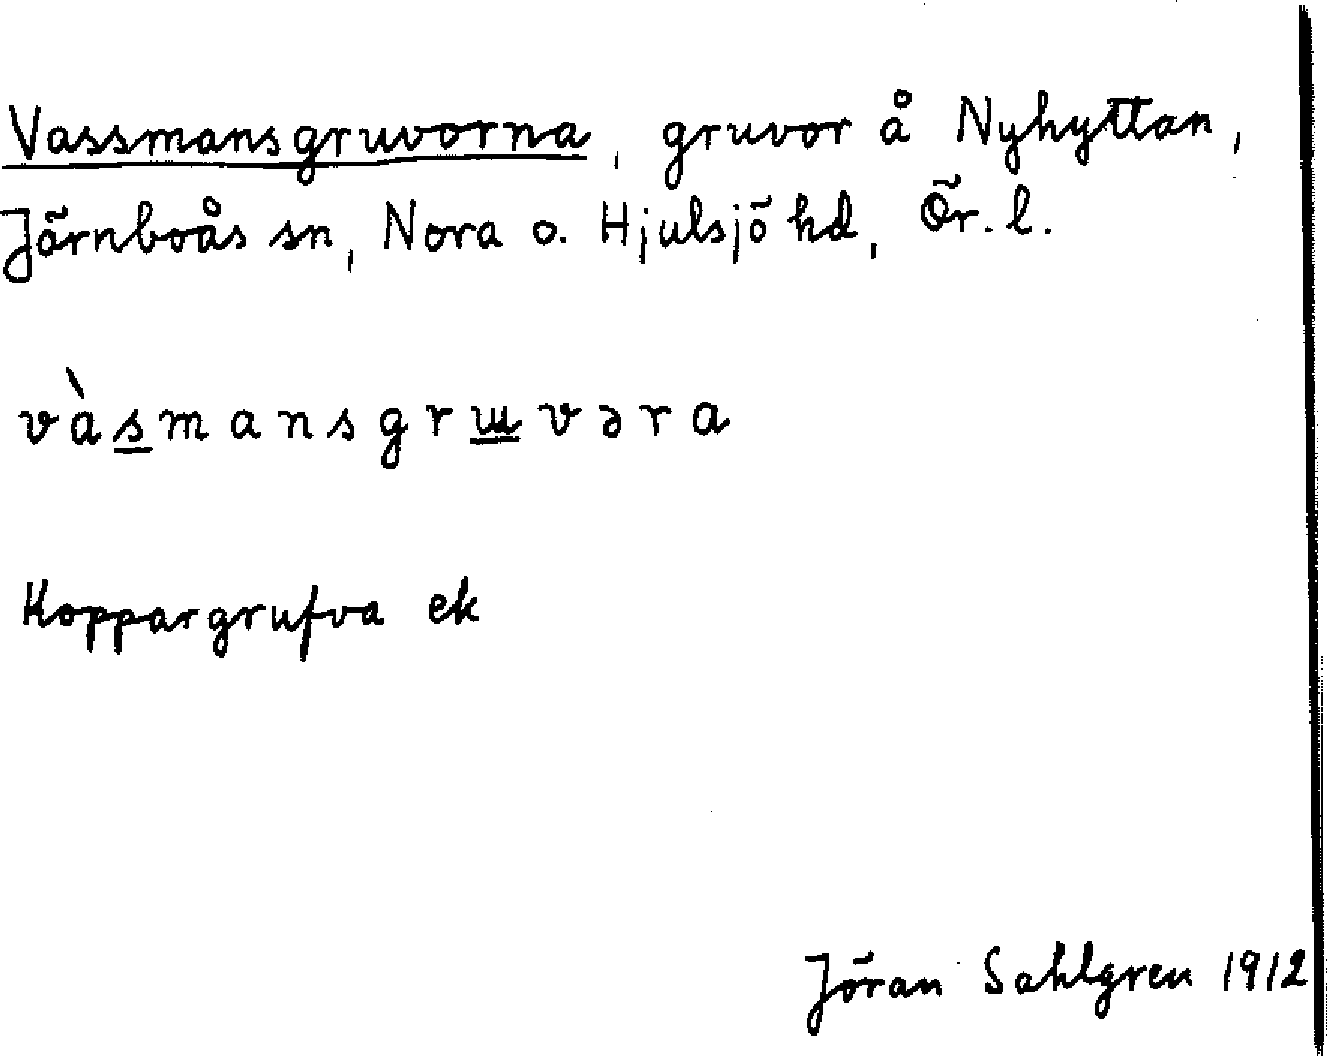 Vassmansgruvorna, gruvor å Nyhyttan,
Järnboås sn, Nora o. Hjulsjö hd, Ör. l.
vàsmansgrɯvəra
Koppargrufva ek
Jöran Sahlgren 1912